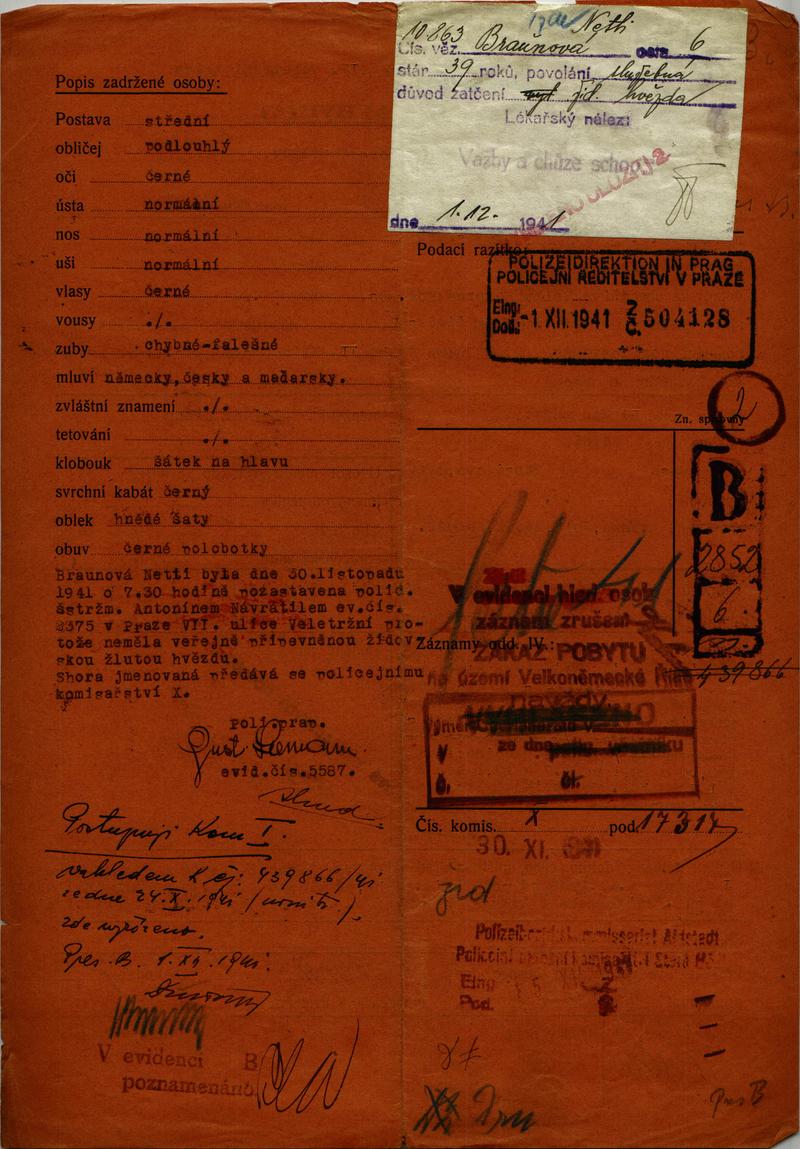 Popis zadržené osoby:
Postava střední
obličej podlouhlý
oči černé
ústa normální
nos normální
uši normální
vlasy černé
vousy ./.
zuby chybné-falešné
mluví německy, česky a maďarsky.
zvláštní znamení ./.
tetování ./.
klobouk šátek na hlavu
svrchní kabát černý
oblek hnědé šaty
obuv černé polobotky
Braunová Netti byla dne 30.listopadu
1941 o 7.30 hodině pozastavena polic.
östržm. Antonínem Návrátilem ev.čís.
2375 v Praze VII. ulice Veletržní pro-
tože neměla veřejně připevněnou židov
skou žlutou hvězdu.
Shora jmenovaná předává se policejnímu
komisařství X.
pol.prap.
evid.čís.5587.
Postupuji Kom I.
vzhledem k čj: 439866/41
ze dne 24.X.1941
Pres. B. 1.XII.1941.
V evidenci B
poznamenáno
10.863 Netti
Čís. věz. Braunova cela 6
stár 39 roků, povolání
důvod zatčení žid. hvězda
Lékařský nález:
Vazby a chůze schop
dne 1.12. 1941
Podací razítko:
POLIZEIDIREKTION IN PRAG
POLICEJNÍ ŘEDITELSTVÍ V PRAZE
Eing.
Doš. -1.XII.1941 Z Č. 504128
2
B
2852
6
439866
V evidenci hled. osob
záznam zrušen
Záznamy odd. IV.:
ZÁKAZ POBYTU
na území Velkoněmecké říše
navždy
ze dne
čl.
Čís. komis. X pod 17314
30. XI. 1941
žid
Polizeibezirkskommissariat Altstadt
Eing
Pod.
Pres B